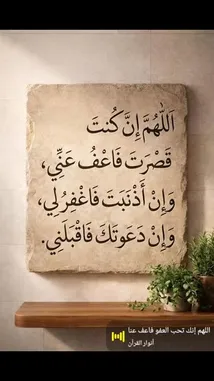 اَللّٰهُمَّ إِنَّ كُنتَ
قَصْرَتَ فَاعْفُ عَنِّي،
وَإِنْ أَذْنَبَتَ فَاغْفِرُلِي،
وَإِنْ دَعَوتَكَ فَاقْبَلَنِي.
اللهم إنك تحب العفو فاعف عنا
أنوار القرآن